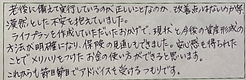 老後に備え実行しているのが正しいとなのか、改善点はないのか等
漠然とした不安を抱えていました。
ライフプランを作成していただいたおかげで、現状と今後の資産形成の
方法が明確になり、保険の見直しもできました。安心感も得られた
ことでメリハリをつけたお金の使い方ができると思います。
これからも節目節目でアドバイスを受けるつもりです。